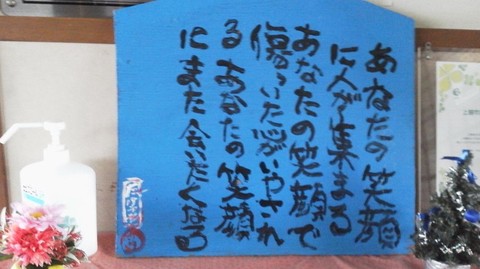 あなたの笑顔
に人が集まる
あなたの笑顔で
傷ついた心がいやされ
るあなたの笑顔
にまた会いたくなる